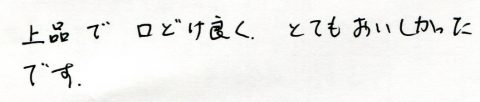 上品で 口どけ良く. とてもおいしかった
です.